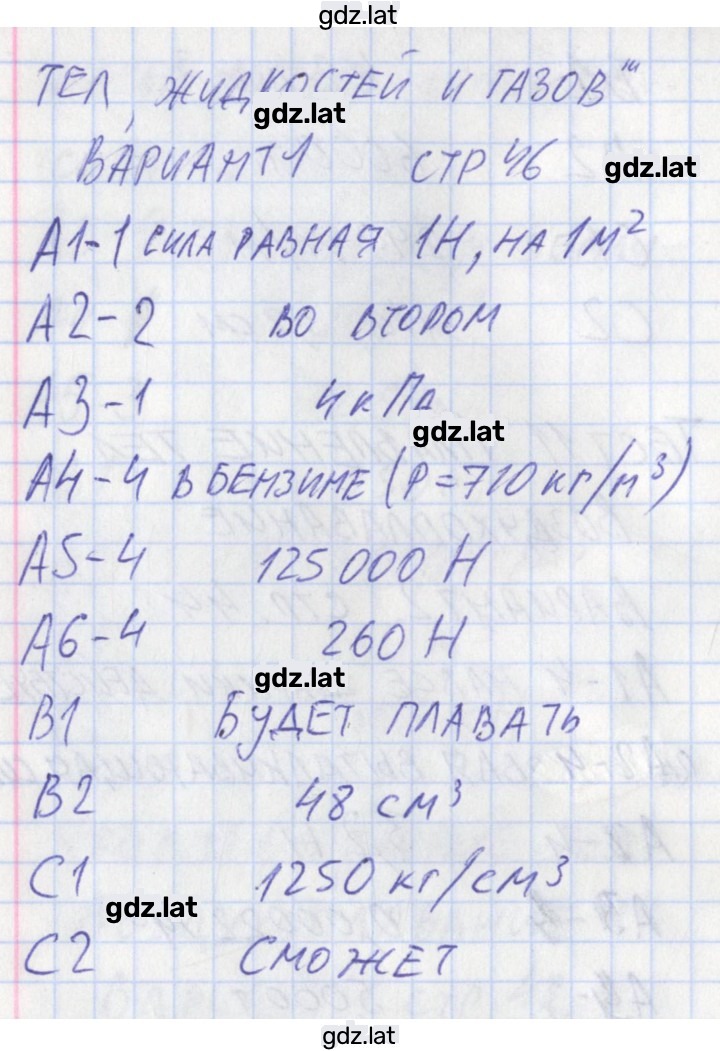 gdz.lat
ТЕЛ, ЖИДКОСТЕЙ И ГАЗОВ"
gdz.lat
ВАРИАНТ 1 СТР 46
gdz.lat
А1-1 СИЛА РАВНАЯ 1Н, НА 1М²
А2-2 ВО ВТОРОМ
А3-1 4 кПа
gdz.lat
А4-4 В БЕНЗИНЕ (Р=710 кг/м³)
А5-4 125 000 Н
А6-4 260 Н
gdz.lat
В1 БУДЕТ ПЛАВАТЬ
В2 48 см³
С1 1250 кг/см³
gdz.lat
С2 СМОЖЕТ
gdz.lat